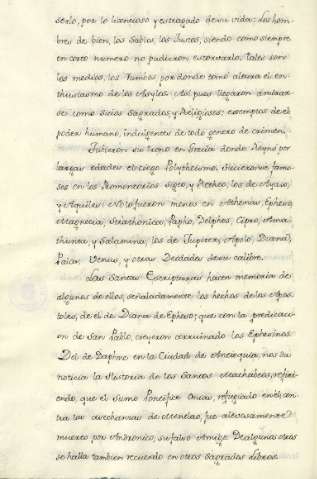 serlo, por lo licencioso y estragado de su vida: Los hom-
bres de bien, los Sabios, los Justos, siendo como siempre
en corto numero no pudieron estorvarlo, tales son
los medios, los rumbos por donde tomó altura el en-
thusiasmo de los Asylos. Asi pues llegaron a mirar-
se como sitios Sagrados, y Religiosos: exemptos de el
poder humano, indulgentes de todo genero de crimen.
Tubieron su trono en Grecia donde Reynó por
largas edades el ciego Polytheismo. Hicieronse famo-
sos en los Promontorios Sigeo, y Retheo, los de Ayax,
y Aquiles. No lo fueron menos en Athenas, Epheso,
Magnesia, Stratonica, Papho, Delphos, Cipro, Ama-
thunta, y Salamina, los de Jupiter, Apolo, Diana,
Palas, Venus, y otras Deidades de su calibre.
Las Santas Escripturas hacen memoria de
algunos de ellos, señaladamente los hechos de los Apos-
toles, de el de Diana de Epheso; que con la predicacion
de San Pablo, creyeron arruinado los Ephesinos.
Del de Daphne en la Ciudad de Antioquia, nos da
noticia la Historia de los Santos Machabeos, refiri-
endo, que el Sumo Pontifice Onias, refugiado en él con-
tra las asechanzas de Menelao, fue alevosamente
muerto por Andronico, su falso Amigo. De algunos otros
se halla tambien recuerdo en otros Sagrados Libros.